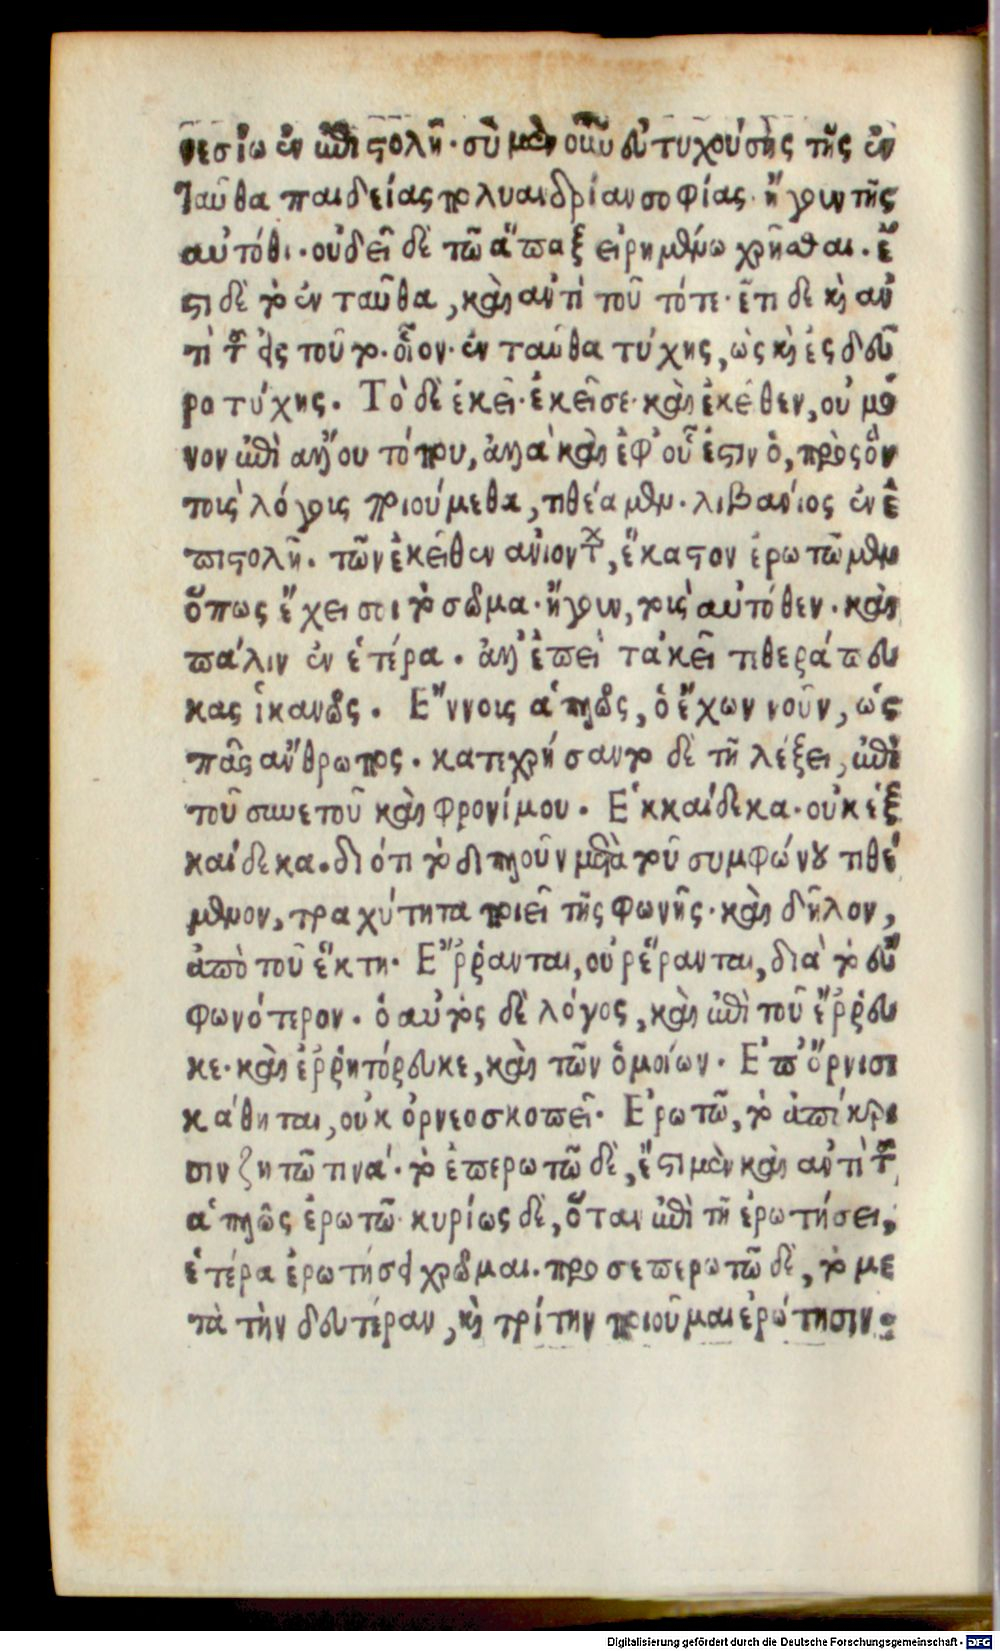 νεσίω ἐν ἐπιστολῆ· σὺ μὲν οὖν εὐτυχούσης τῆς ἐν
ταῦθα παιδείας πολυανδρίαν σοφίας· ἤγουν τῆς
αὐτόθι· οὐδεῖ δὲ τῶ ἅπαξ εἰρημένω χρῆσθαι. ἔ
στι δὲ τὸ ἐν ταῦθα, καὶ ἀντὶ τοῦ τότε· ἔτι δὲ καὶ ἀν
τὶ τῆς εἰς τοῦτο· οἷον· ἐν ταῦθα τύχης, ὡς καὶ ἐς δεῦ
ρο τύχης. Τὸ δὲ ἐκεῖ· ἐκεῖσε· καὶ ἐκεῖθεν, οὐ μό
νον ἐπὶ ἄλλου τόπου, ἀλλὰ καὶ ἐφ' οὗ ἐστιν ὁ, πρὸς ὃν
τοὺς λόγους ποιούμεθα, τιθέαμεν· λιβάνιος ἐν ἐ
πιστολῆ. τῶν ἐκεῖθεν ἀνιόντων, ἕκαστον ἐρωτῶμεν
ὅπως ἔχει σοι τὸ σῶμα· ἤγουν, τοὺς αὐτόθεν· καὶ
πάλιν ἐν ἑτέρα. ἀλλ' ἐπεὶ τἀκεῖ τεθεράπευ
κας ἱκανῶς. Ἔννοις ἁπλῶς, ὁ ἔχων νοῦν, ὡς
πᾶς ἄνθρωπος. κατεχρήσαντο δὲ τῆ λέξει, ἐπὶ
τοῦ συνετοῦ καὶ φρονίμου. Ἑκκαίδεκα. οὐκ ἑξ
καίδεκα. διότι τὸ διπλοῦν μετὰ τοῦ συμφώνου τιθέ
μενον, τραχύτητα ποιεῖ τῆς φωνῆς· καὶ δῆλον,
ἀπὸ τοῦ ἕκτη· Ἔῤῥανται, οὐ ῥέρανται, διὰ τὸ εὐ
φωνότερον. ὁ αὐτὸς δὲ λόγος, καὶ ἐπὶ τοῦ ἔῤῥευ
κε· καὶ ἐῤῥητόρευκε, καὶ τῶν ὁμοίων. Ἐπ' ὄρνισι
κάθηται, οὐκ ὀρνεοσκοπεῖ. Ἐρωτῶ, τὸ ἀπόκρι
σιν ζητῶ τινά· τὸ ἐπερωτῶ δὲ, ἔστι μὲν καὶ ἀντὶ τοῦ
ἁπλῶς ἐρωτῶ· κυρίως δὲ, ὅταν ἐπὶ τῆ ἐρωτήσει,
ἑτέρα ἐρωτήσει χρῶμαι. προσεπερωτῶ δὲ, τὸ με
τὰ τὴν δευτέραν, καὶ τρίτην ποιοῦμαι ἐρώτησιν: